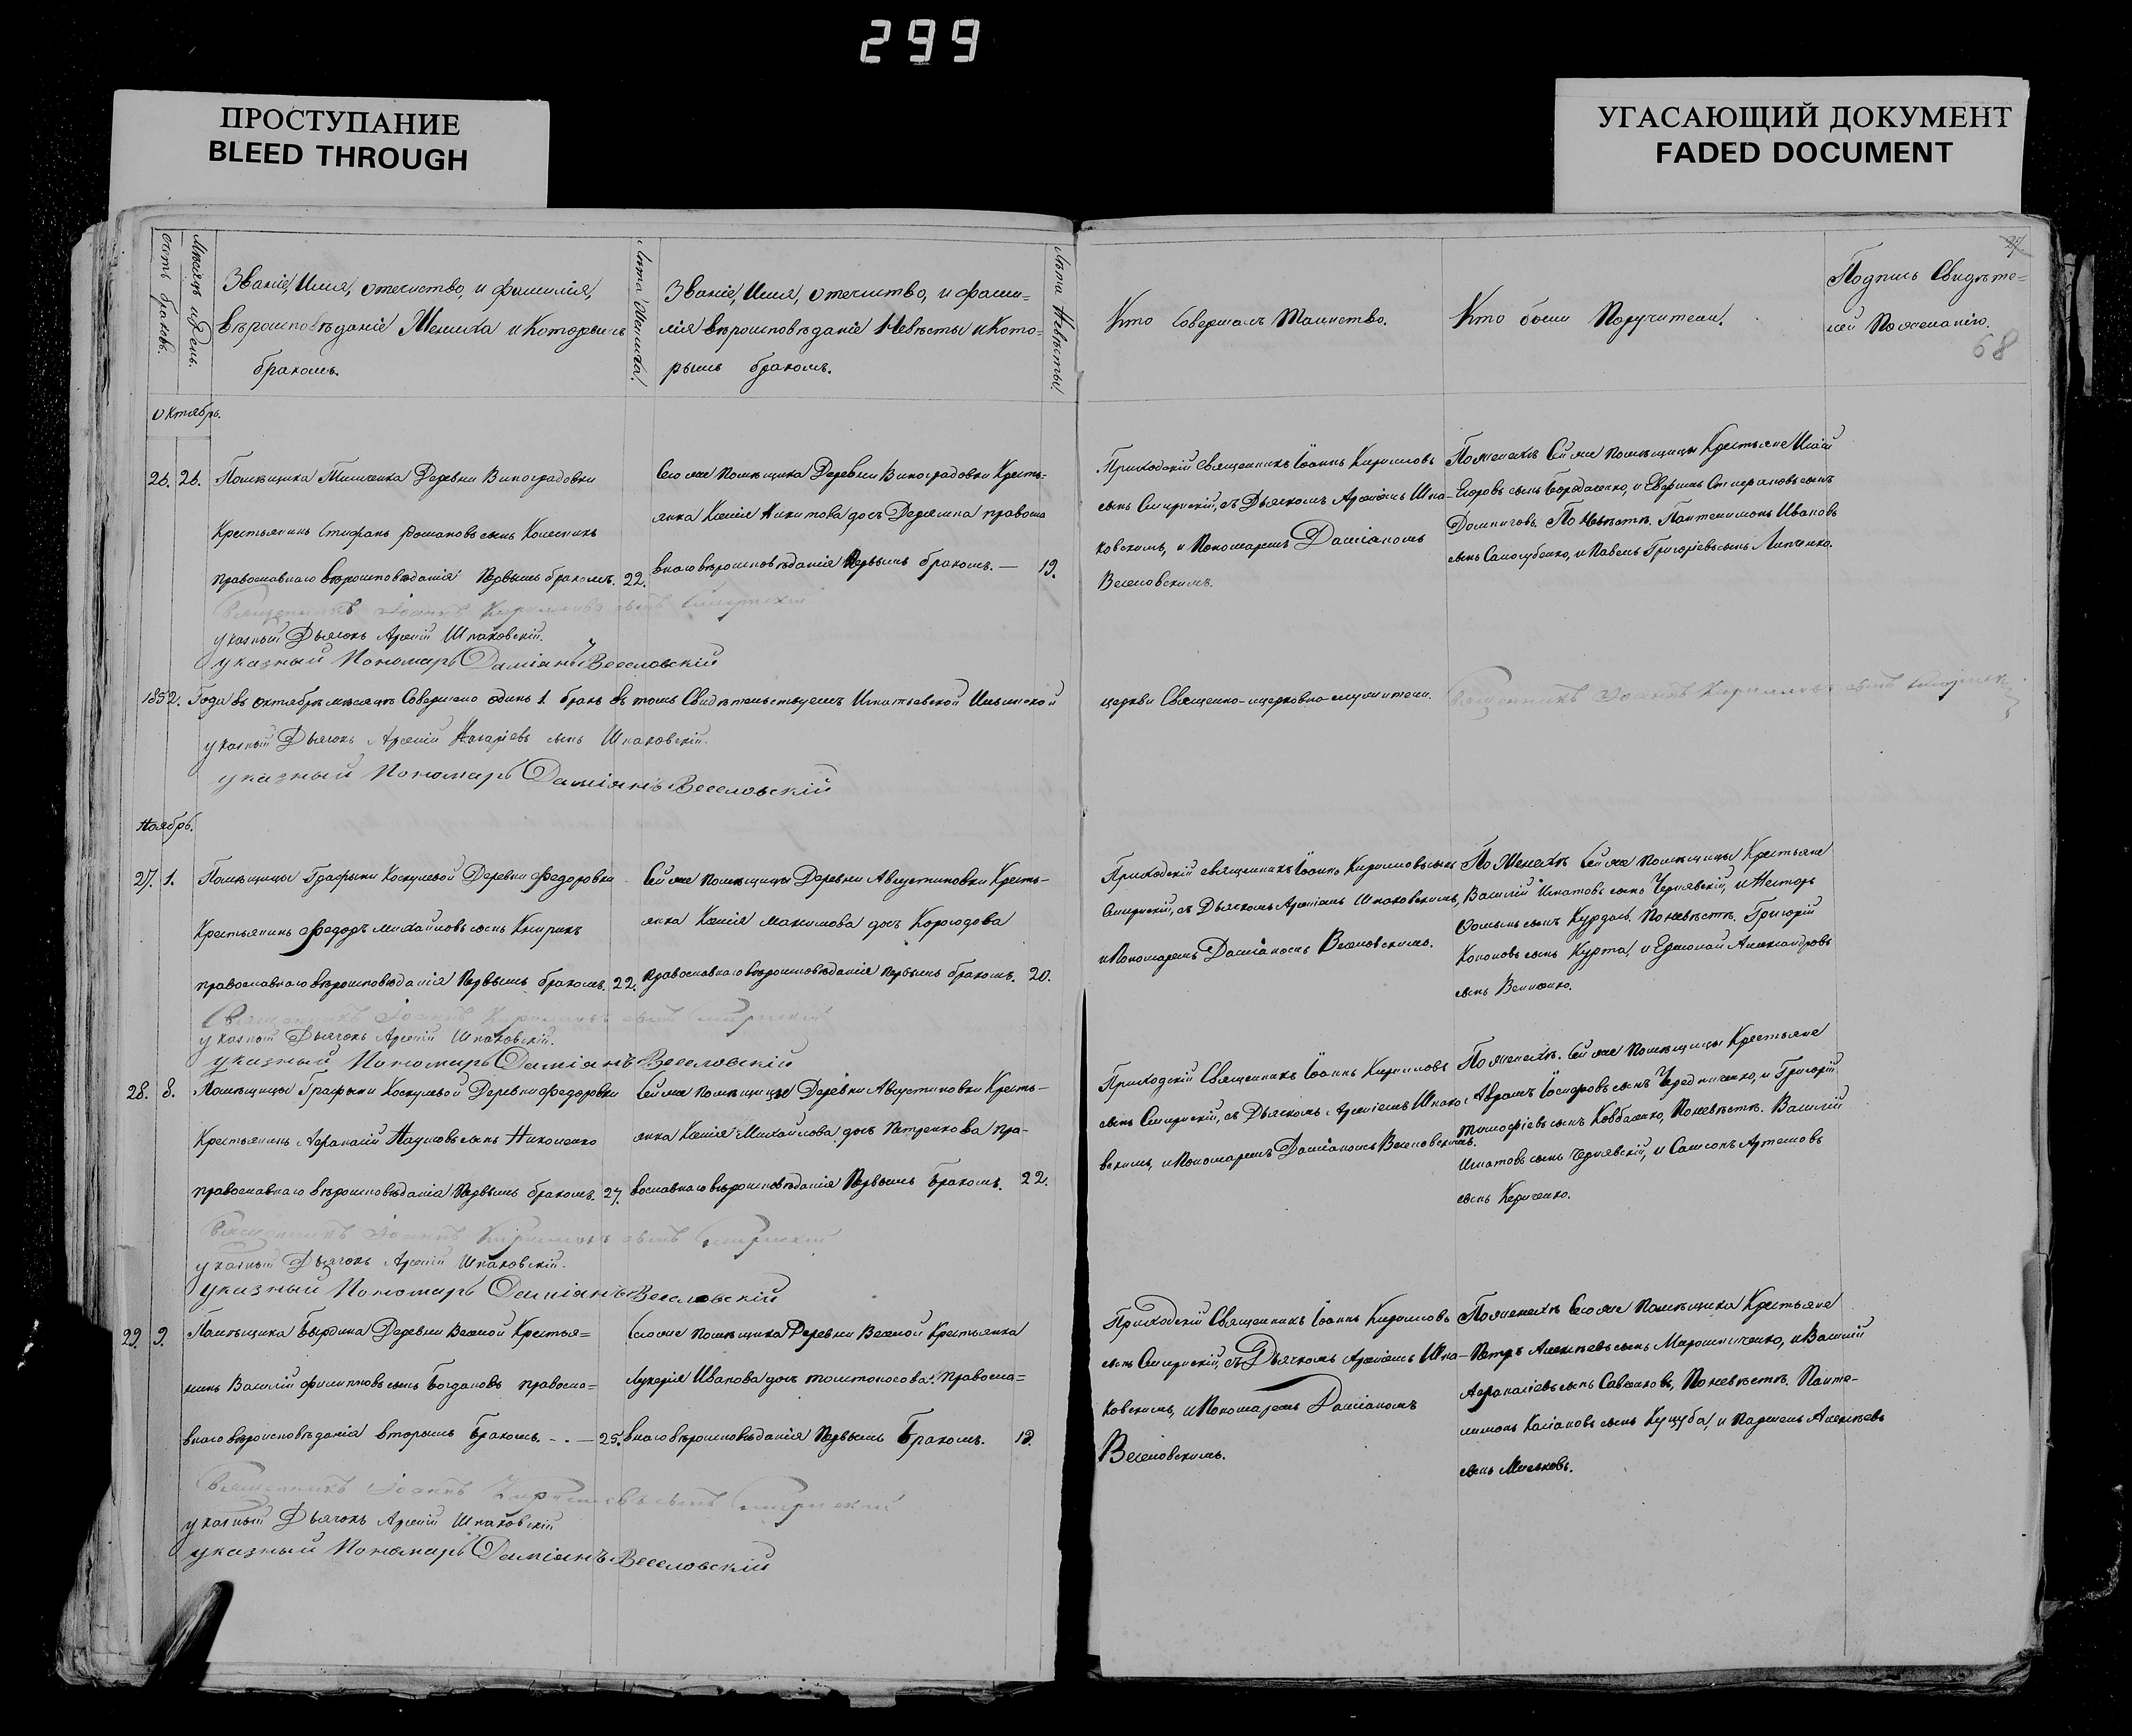 299
ПРОСТУПАНИЕ
BLEED THROUGH
УГАСАЮЩИЙ ДОКУМЕНТ
FADED DOCUMENT
счетъ браковъ.
Мѣсяцъ и День.
Званіе, Имя, отечество, и фамилія,
вѣроисповѣданіе Жениха и Которымъ
бракомъ.
Лѣта Жениха.
Званіе, Имя, отечество, и фами-
лія вѣроисповѣданіе Невѣсты и Кото-
рымъ бракомъ.
Лѣта Невѣсты.
Кто Совершалъ Таинство.
Кто были Поручители.
Подпись Свидѣте-
лей По желанію.
27
68
Октябрь.
26. 26. Помѣщика Деревни Виноградовки
Крестьянинъ Стефанъ Романовъ сынъ Колесникъ
православнаго вѣроисповѣданія Первымъ бракомъ. 22.
Его же помѣщика Деревни Виноградовки Кресть-
янка Ксенія Никитова дочь православ
внаго вѣроисповѣданія Первымъ бракомъ. — 19.
Приходскій священникъ Іоаннъ Кириловъ
сынъ Смирнскій, съ Дьячкомъ Арсеніемъ Шпа-
ковскимъ, и Пономаремъ Даміаномъ
Веселовскимъ.
По женихѣ Сей же помѣщицы Крестьяне
Егоровъ сынъ и Стефановъ сынъ
По Невѣстѣ. Пантелимонъ Ивановъ
сынъ Самогубенко, и Павелъ Григорьевъ сынъ Липченко.
Священникъ Іоаннъ Кириловъ сынъ Смирнскій
указный Дьячокъ Арсеній Шпаковскій.
указный Пономарь Даміанъ Веселовскій
1852. Года въ октябрѣ мѣсяцѣ Совершено одинъ 1. бракъ въ томъ Свидѣтельствуемъ Игнатьевской Ильинской
церкви Священно-церковно-служители. Священникъ Іоаннъ Кириловъ сынъ Смирнскій
указный Дьячокъ Арсеній сынъ Шпаковскій.
указный Пономарь Даміанъ Веселовскій
Ноябрь.
27. 1. Помѣщицы Графыни Деревни Федоровки
Крестьянинъ Федоръ Михайловъ сынъ
православнаго вѣроисповѣданія Первымъ бракомъ. 22.
Сей же помѣщицы Деревни Августиновки Кресть-
янка Ксенія Максимова дочь
православнаго вѣроисповѣданія первымъ бракомъ. 20.
Приходскій священникъ Іоаннъ Кириловъ сынъ
Смирнскій, съ Дьячкомъ Арсеніемъ Шпаковскимъ,
и Пономаремъ Даміаномъ Веселовскимъ.
По Женихѣ Сей же помѣщицы Крестьяне
Василій Игнатовъ сынъ Чернявскій, и Несторъ
Фоминъ сынъ По невѣстѣ. Григорій
Кононовъ сынъ Курта, и Ермолай Александровъ
сынъ Величко.
Священникъ Іоаннъ Кириловъ сынъ Смирнскій
указный Дьячокъ Арсеній Шпаковскій.
указный Пономарь Даміанъ Веселовскій
28. 8. Помѣщицы Графыни Деревни Федоровки
Крестьянинъ Афанасій Наумовъ сынъ Николенко
православнаго вѣроисповѣданія Первымъ бракомъ. 27.
Сей же помѣщицы Деревни Августиновки Кресть-
янка Ксенія Михайлова дочь Петренкова пра-
вославнаго вѣроисповѣданія Первымъ Бракомъ. 22.
Приходскій Священникъ Іоаннъ Кириловъ
сынъ Смирнскій, съ Дьячкомъ Арсеніемъ Шпако
вскимъ, и Пономаремъ Даміаномъ Веселовскимъ.
По женихѣ. Сей же Помѣщицы Крестьяне
Аврамъ Іосифовъ сынъ Чередниченко, и Григорій
Тимофіевъ сынъ Ковбасенко, По невѣстѣ. Василій
Игнатовъ сынъ Чернявскій, и Самсонъ Артемовъ
сынъ Кириченко.
Священникъ Іоаннъ Кириловъ сынъ Смирнскій
указный Дьячокъ Арсеній Шпаковскій.
указный Пономарь Даміанъ Веселовскій
29. 9. Помѣщика Бырдина Деревни Веселой Крестья=
нинъ Василій Филипповъ сынъ Богдановъ Правосла=
внаго вѣроисповѣданія вторымъ Бракомъ. - . — 25.
Его же помѣщика Деревни Веселой Крестьянка
Лукерія Иванова дочь Толстоносова. Правосла=
внаго вѣроисповѣданія Первымъ Бракомъ. 19.
Приходскій Священникъ Іоаннъ Кириловъ
сынъ Смирнскій, съ Дьячкомъ Арсеніемъ Шпа-
ковскимъ, и Пономаремъ Даміаномъ
Веселовскимъ.
По женихѣ Его же Помѣщика Крестьяне
Петръ Алексѣевъ сынъ Мирошниченко, и Василій
Афанасіевъ сынъ Савенковъ, По невѣстѣ. Панте-
лимонъ Касіановъ сынъ Куцуба, и Парменъ Алексѣевъ
сынъ Мисковъ.
Священникъ Іоаннъ Кириловъ сынъ Смирнскій
указный Дьячокъ Арсеній Шпаковскій
указный Пономарь Даміанъ Веселовскій